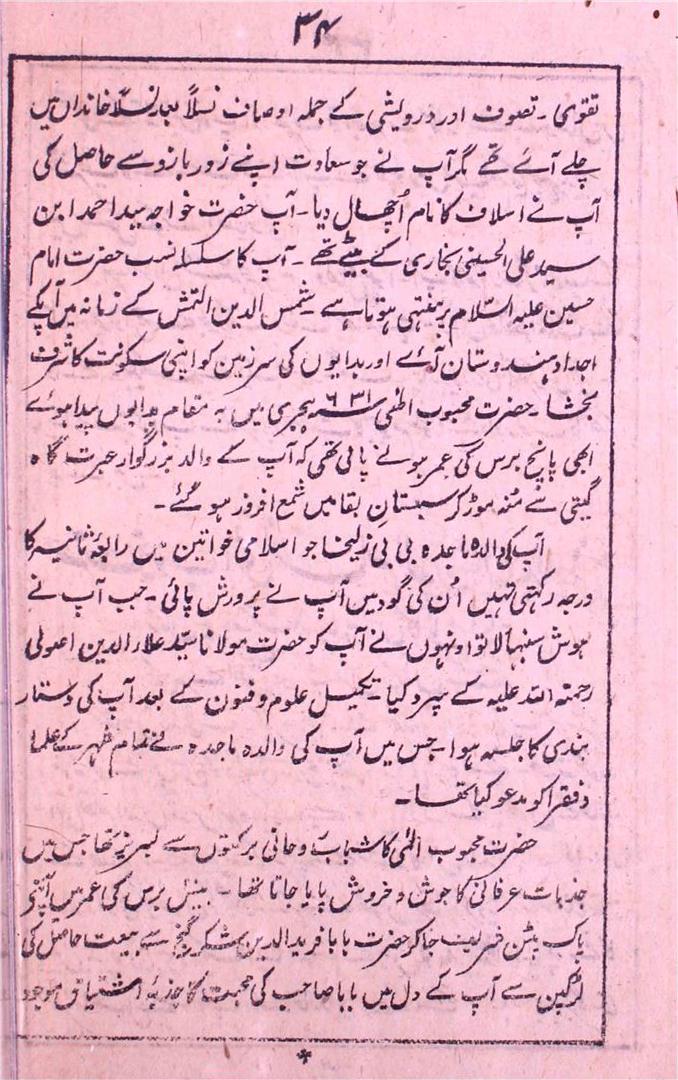 ۳۴
تقوی۔ تصوف اور درویشی کے جملہ اوصاف نسلاً بعد نسلاً خاندان میں
چلے آئے تھے مگر آپ نے جو سعادت اپنے زور بازو سے حاصل کی
آپ نے اسلاف کا نام اُچھال دیا۔ آپ حضرت خواجہ سید احمد ابن
سید علی الحسینی بخاری کے بیٹے تھے۔ آپ کا سلسلہ نسب حضرت امام
حسین علیہ السّلام پر منتہی ہوتا ہے۔ شمس الدین التمش کے زمانہ میں آپکے
اجداد ہندوستان آئے اور بدایوں کی سرزمین کو اپنی سکونت کا شرف
بخشا۔ حضرت محبوب الٰہی ۶۳۱ سنہ ہجری میں بہ مقام بدایوں پیدا ہوئے
ابھی پانچ برس کی عمر ہونے پائی تھی کہ آپ کے والد بزرگوار عبرت گاہ
گیتی سے منہ موڑ کر سبستانِ بقا میں شمع افروز ہو گئے۔
آپ کی والدہ ماجدہ بی بی زلیخا جو اسلامی خواتین میں رابعۂ ثانیہ کا
درجہ رکہتی تہیں اُن کی گود میں آپ نے پرورش پائی۔ جب آپ نے
ہوش سنبہالا تو اونہوں نے آپ کو حضرت مولانا سیّد علاء الدین اصولی
رحمتہ اللہ علیہ کے سپرد کیا۔ تکمیل علوم و فنون کے بعد آپ کی دستار
بندی کا جلسہ ہوا۔ جس میں آپ کی والدہ ماجدہ نے تمام شہر کے علما
و فقرا کو مدعو کیا تھا۔
حضرت محبوب الٰہی کا شباب روحانی برکتوں سے لبریز تھا جس میں
جذبات عرفانی کا جوش و خروش پایا جاتا تھا۔ بیس برس کی عمر میں آپنے
پاک پٹن شریف جا کر حضرت بابا فرید الدین شکر گنج سے بیعت حاصل کی
لڑکپن سے آپ کے دل میں بابا صاحب کی محبت کا جذبۂ اشتیاق موجود